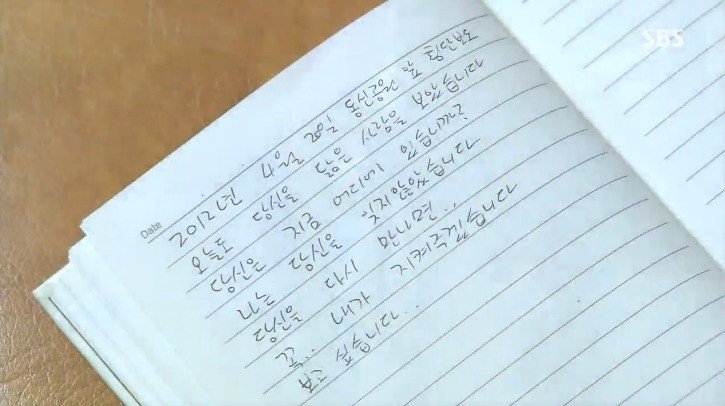 SBS
Date
2012년 4월 28일 동신공원 앞 횡단보도
오늘도 당신을 닮은 사람을 보았습니다
당신은 지금 어디에 있습니까?
나는 당신을 잊지않았습니다
당신을 다시 만나면..
꼭.. 내가 지켜주겠습니다
보고 싶습니다..